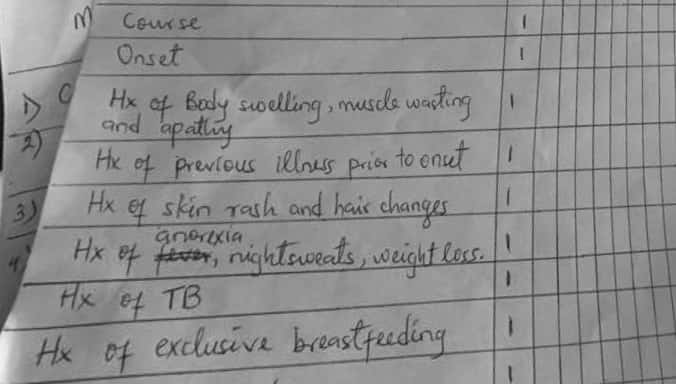 Course 1
Onset 1
Hx of Body swelling, muscle wasting 1
and apathy
Hx of previous illness prior to onset 1
Hx of skin rash and hair changes 1
anorexia
Hx of fever, nightsweats, weight loss. 1
Hx of TB 1
Hx of exclusive breastfeeding 1
1
1)
2)
3)
4)